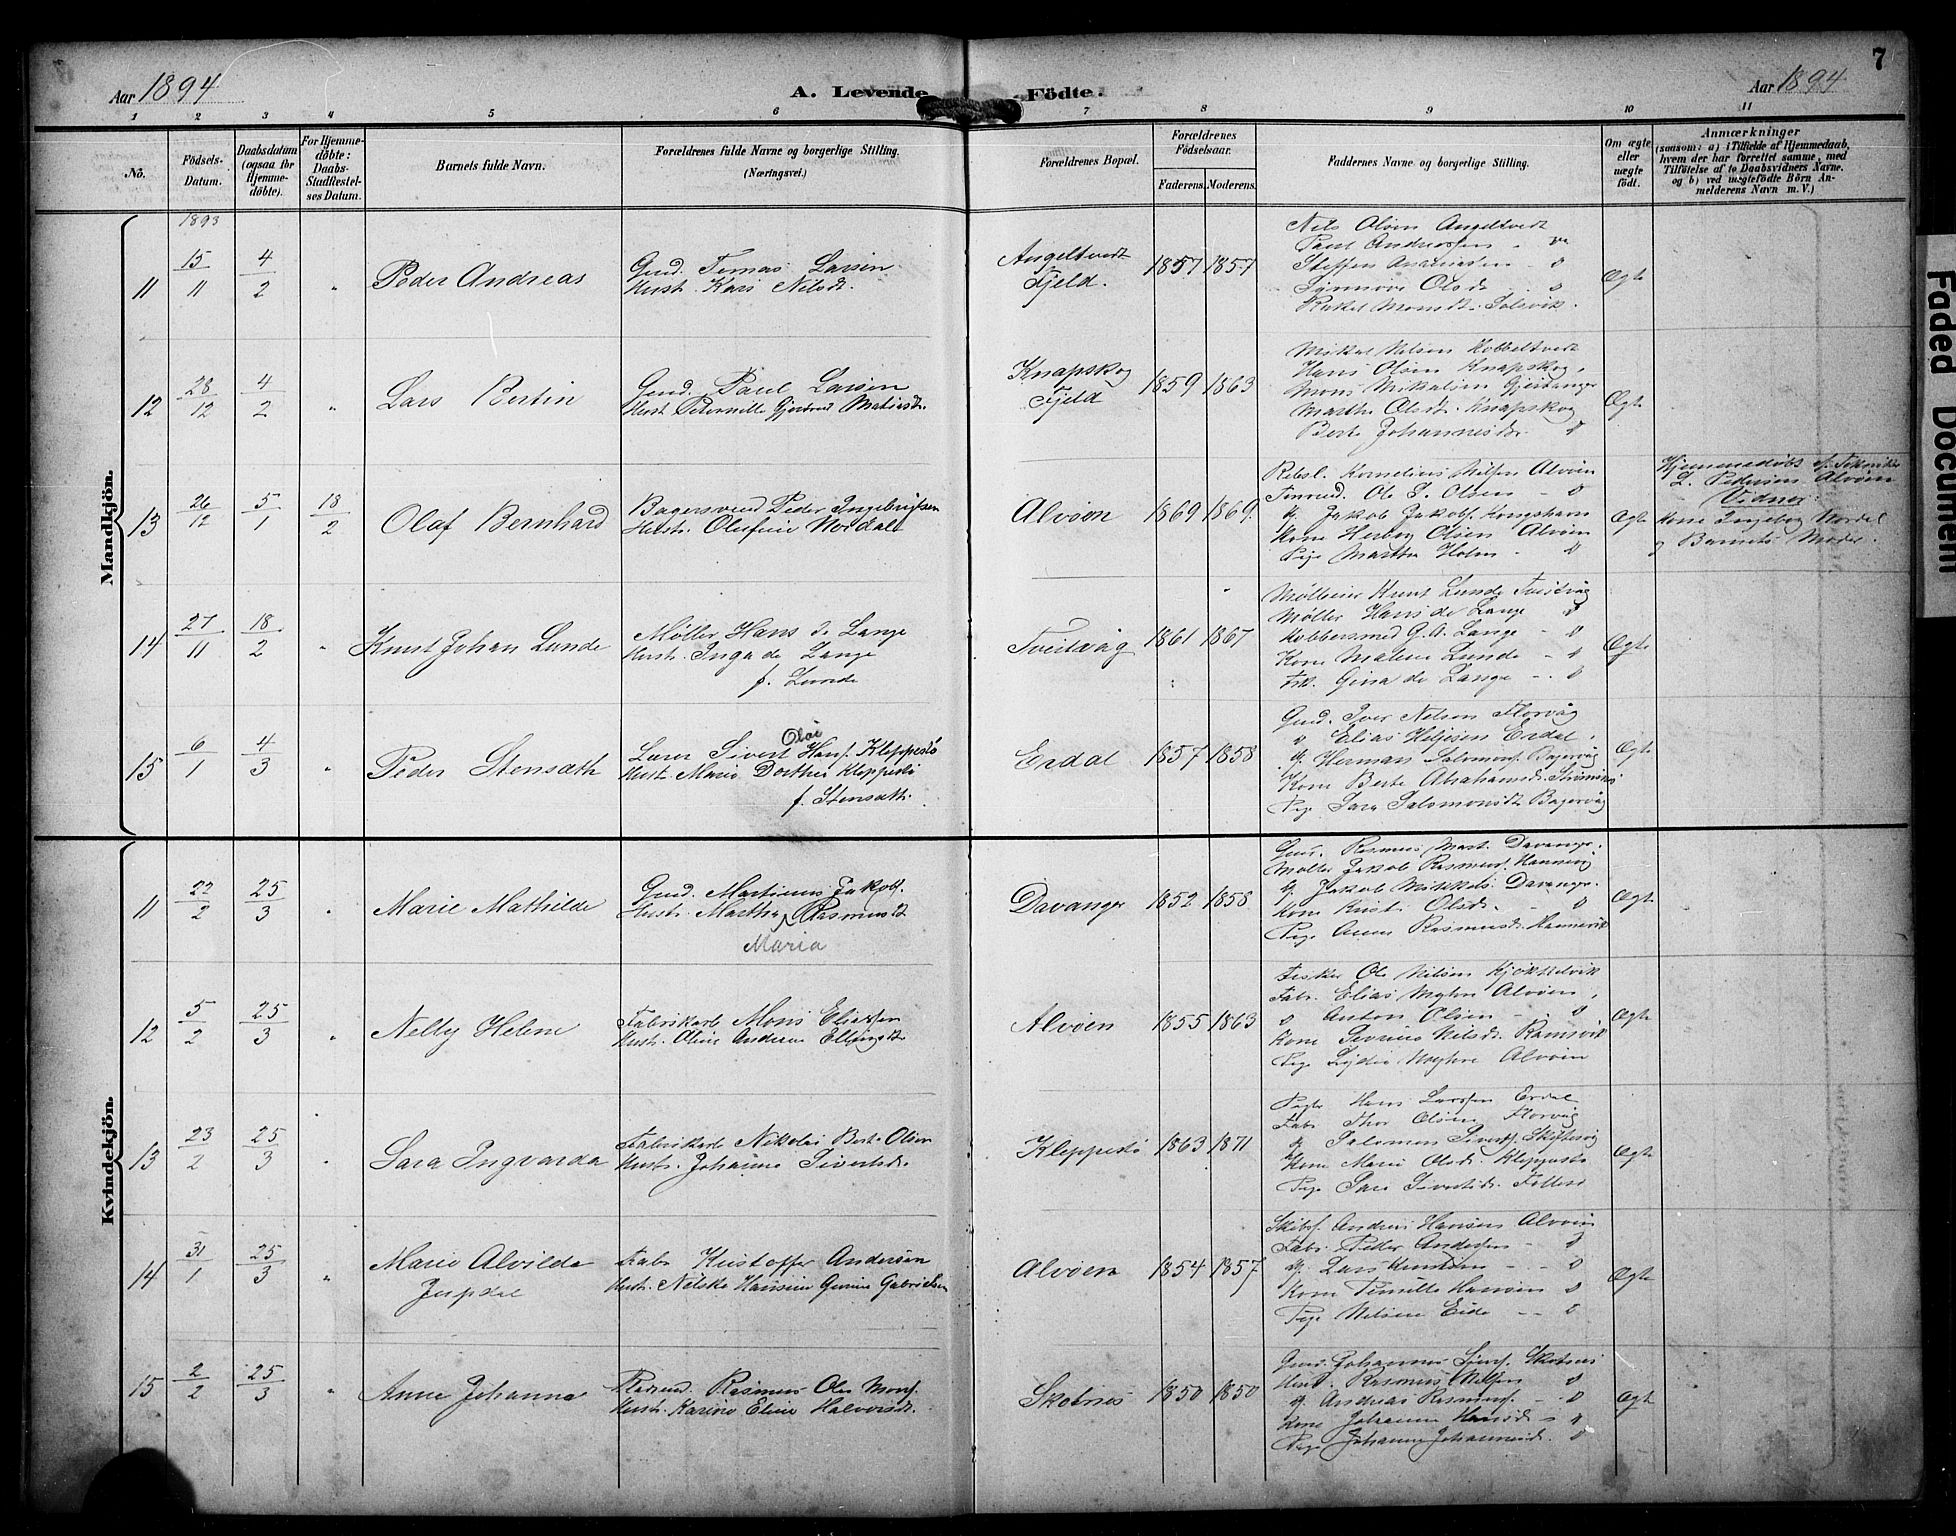 7
Aar 1894
A. Levende Födte.
Aar 1894
1 2 3 4 5 6 7 8 9 10 11
No.
Födsels-Datum.
Daabsdatum (ogsaa for Hjemmedöbte).
For Hjemmedöbte: Daabs-Stadfæstelses Datum.
Barnets fulde Navn.
Forældrenes fulde Navne og borgerlige Stilling.
(Næringsvei.)
Forældrenes Bopæl.
Forældrenes Födselsaar.
Faderens. Moderens.
Faddernes Navne og borgerlige Stilling.
Om ægte eller uægte födt.
Anmærkninger
(saasom: a) i Tilfælde af Hjemmedaab, hvem der har forrettet samme, med Tilföielse af to Daabsvidners Navne. og b) ved uægtefödte Börn Anmelderens Navn m. V.)
Mandkjön.
1893
11 15/11 4/2 " Peder Andreas
Gmd. Tomas Larsen
Hust. Kari Nilsdt.
Angeltvedt
Fjeld.
1857 1857
Nils Olsen Angeltvedt
Paul Andreassen
Synnöve Olsd
Rakel Monsdt. Solsvik.
Ægte
12 28/12 4/2 " Lars Bertin
Gmd. Paul Larsen
Hust. Pernille Gjertrud Matiasdt.
Knapskog
Fjeld
1859 1863
Mikal Nilsen Kobbeltvedt
Hans Olsen Knapskog
Mons Mikalsen Gjeitanger
Marthe Olsdt. Knapskog
Berte Johannesdt. "
Ægte
13 26/12 5/1 18/2 Olaf Bernhard
Bagersvend Peder Ingebrigtsen
Hust. Olufine Nordal
Alvöen
1869 1869
Rebsl. Kornelius Nilsen Alvöen
Ole L. Olsen - "
Jakob Jakobs. Kongshavn
Kone Herborg Olsen Alvöen
Pige Marthe Holm - "
Ægte
Hjemmedöbt af
L. Pedersen Alvöen
Vidner:
Kone Ingeborg Nordal
og Barnets Moder.
14 27/11 18/2 " Knut Johan Lunde
Møller Hans de Lange
Hust. Inga de Lange
f. Lunde
Tveitvåg
1861 1867
Knut Lunde Tveitvåg
Møller Hans de Lange "
Kobbersmed G. A. Lange - "
Kone Malene Lunde - "
Frk. Gina de Lange - "
Ægte
15 6/1 4/3 " Peder Stensæth
Olai
Lærer Sivert Hans. Kleppestø
Hust. Marie Dorthea Kleppestø
f. Stensæth.
Erdal
1857 1858
Gmd. Iver Nilsen Florvåg
" Elias Heljesen Erdal
Herman Salomons.
Kone Berte Abrahamsdt.
Pige Sara Salomonsdt.
Ægte
Kvindekjön.
11 22/2 25/3 " Marie Mathilde
Gmd. Martinus Jakobs.
Hust. Martha Rasmusdt
Maria
Davanger
1852 1858
Gmd. Rasmus Mart. Davanger.
Møller Jakob Rasmus. Hannevig
Jakob Mikkels. Davanger.
Kone Kristi Olsdt. - "
Pige Anne Rasmusdt. Hannevik
Ægte
12 5/2 25/3 " Nelly Helene
Fabrikarb. Mons Eliassen
Hust. Oline Andrea Ellingsdt
Alvöen
1855 1863
Fisker Ole Nilsen Kjøkkelvik
Fabr. Elias Myhre Alvöen
" Anton Olsen - "
Kone Severine Nilsdt. Ramsvik
Pige Lydia Myhre Alvöen
Ægte
13 23/2 25/3 " Sara Ingvarda
Fabrikarb. Nikolai Bert. Olsen
Hust. Johanne Sivertsdt.
Kleppestö
1863 1871
Hans Larssen Erdal
Fab. Thor Olsen Florvåg
Salomon Siverts. Skiftesvig
Kone Marie Olsdt. Kleppestø
Pige Sara Sivertsdt. Follesø
Ægte
14 31/1 25/3 " Marie Alvilde
Jupdal
Fabr. Kristoffer Andersen
Hust. Nelske Hansine Gurine Gabrielsen
Alvöen
1854 1857
Skibsf. Andreas Hansen Alvöen
Fabr. Peder Andersen - "
Lars Knudsen - "
Kone Pernille Hansen "
Pige Nilsine Eide - "
Ægte
15 2/2 25/3 " Anne Johanna
Rasmus Olai Mons.
Hust. Karine Eline Halvorsdt.
Skotnes
1850 1850
Gmd. Johannes Skotnes
Rasmus Nilsen "
Andreas Rasmus. - "
Kone Johanne Hansdt - "
Pige Johanne Johannesdt. "
Ægte
Faded Document